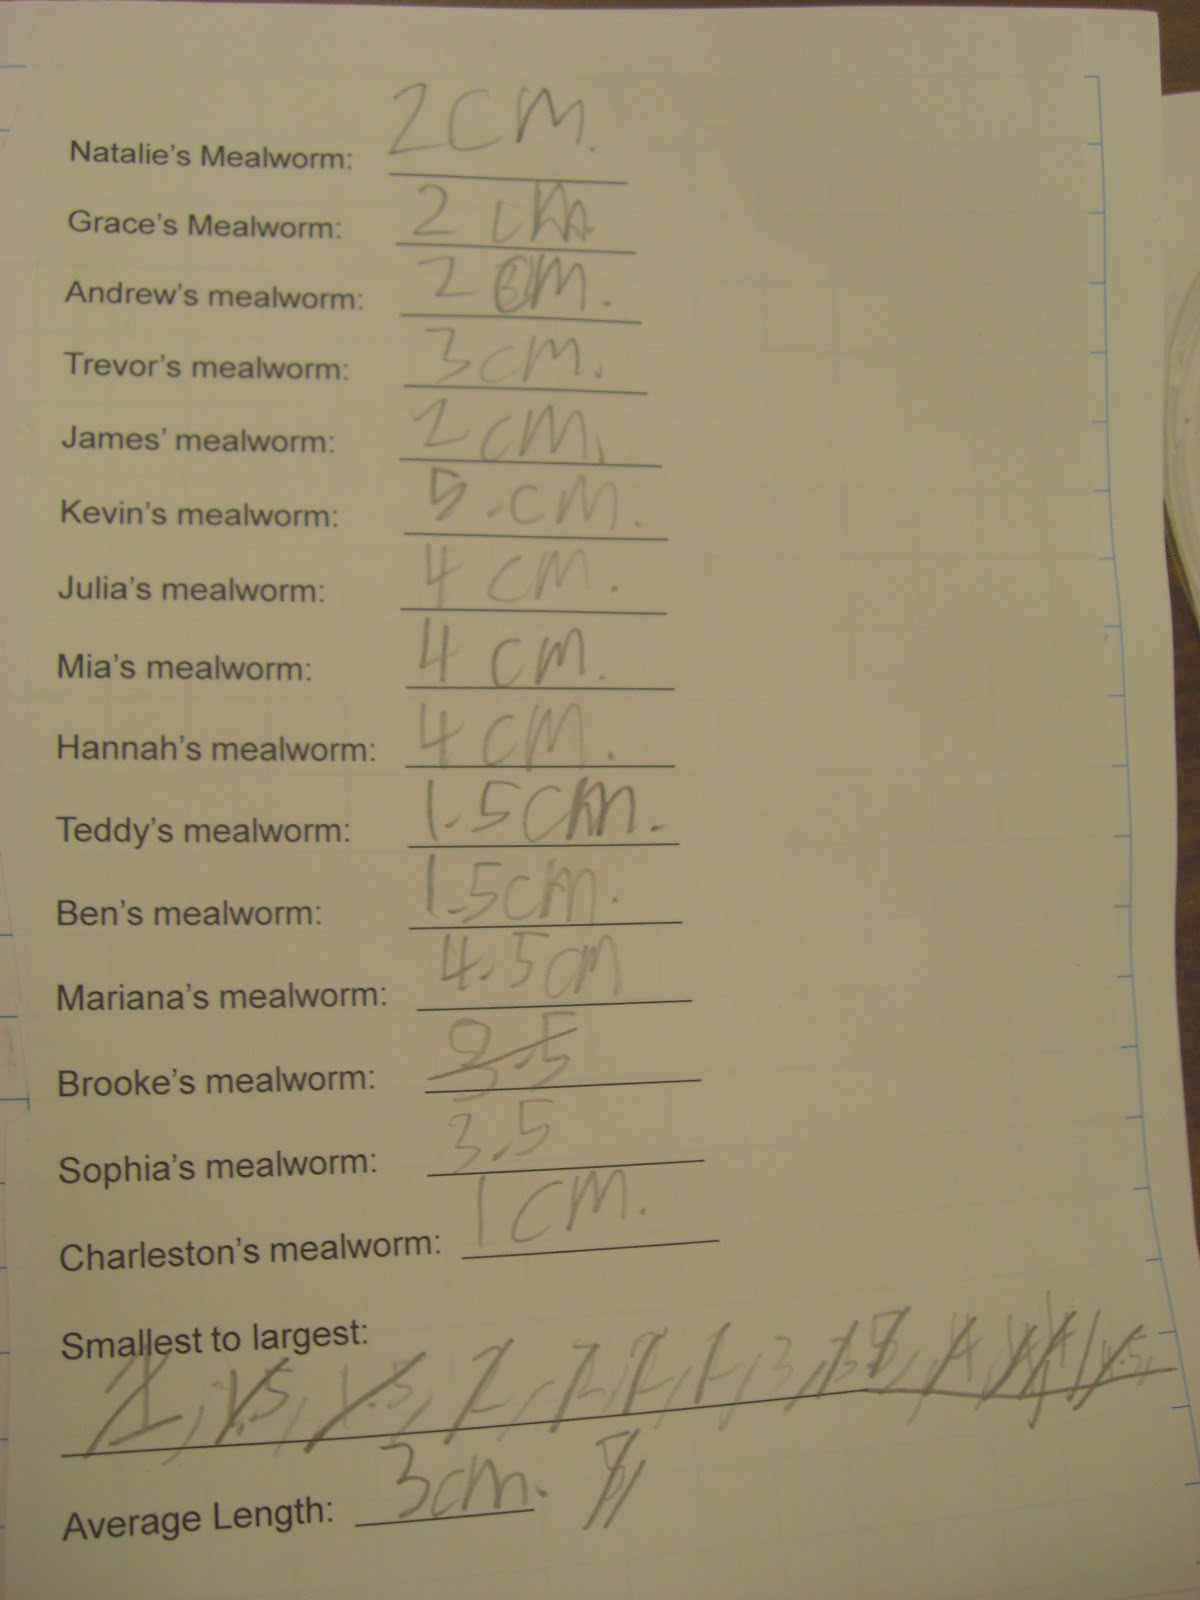 Natalie's Mealworm: 2cm.
Grace's Mealworm: 2 cm
Andrew's mealworm: 2 cm.
Trevor's mealworm: 3cm.
James' mealworm: 2 cm.
Kevin's mealworm: 5.cm.
Julia's mealworm: 4 cm.
Mia's mealworm: 4 cm.
Hannah's mealworm: 4 cm.
Teddy's mealworm: 1.5cm.
Ben's mealworm: 1.5cm.
Mariana's mealworm: 4.5cm
Brooke's mealworm: 3.5
Sophia's mealworm: 3.5
Charleston's mealworm: 1 cm.
Smallest to largest:
1, 1.5, 1.5, 2, 2, 2, 2, 3, 4, 4, 4, 4.5,
Average Length: 3cm.